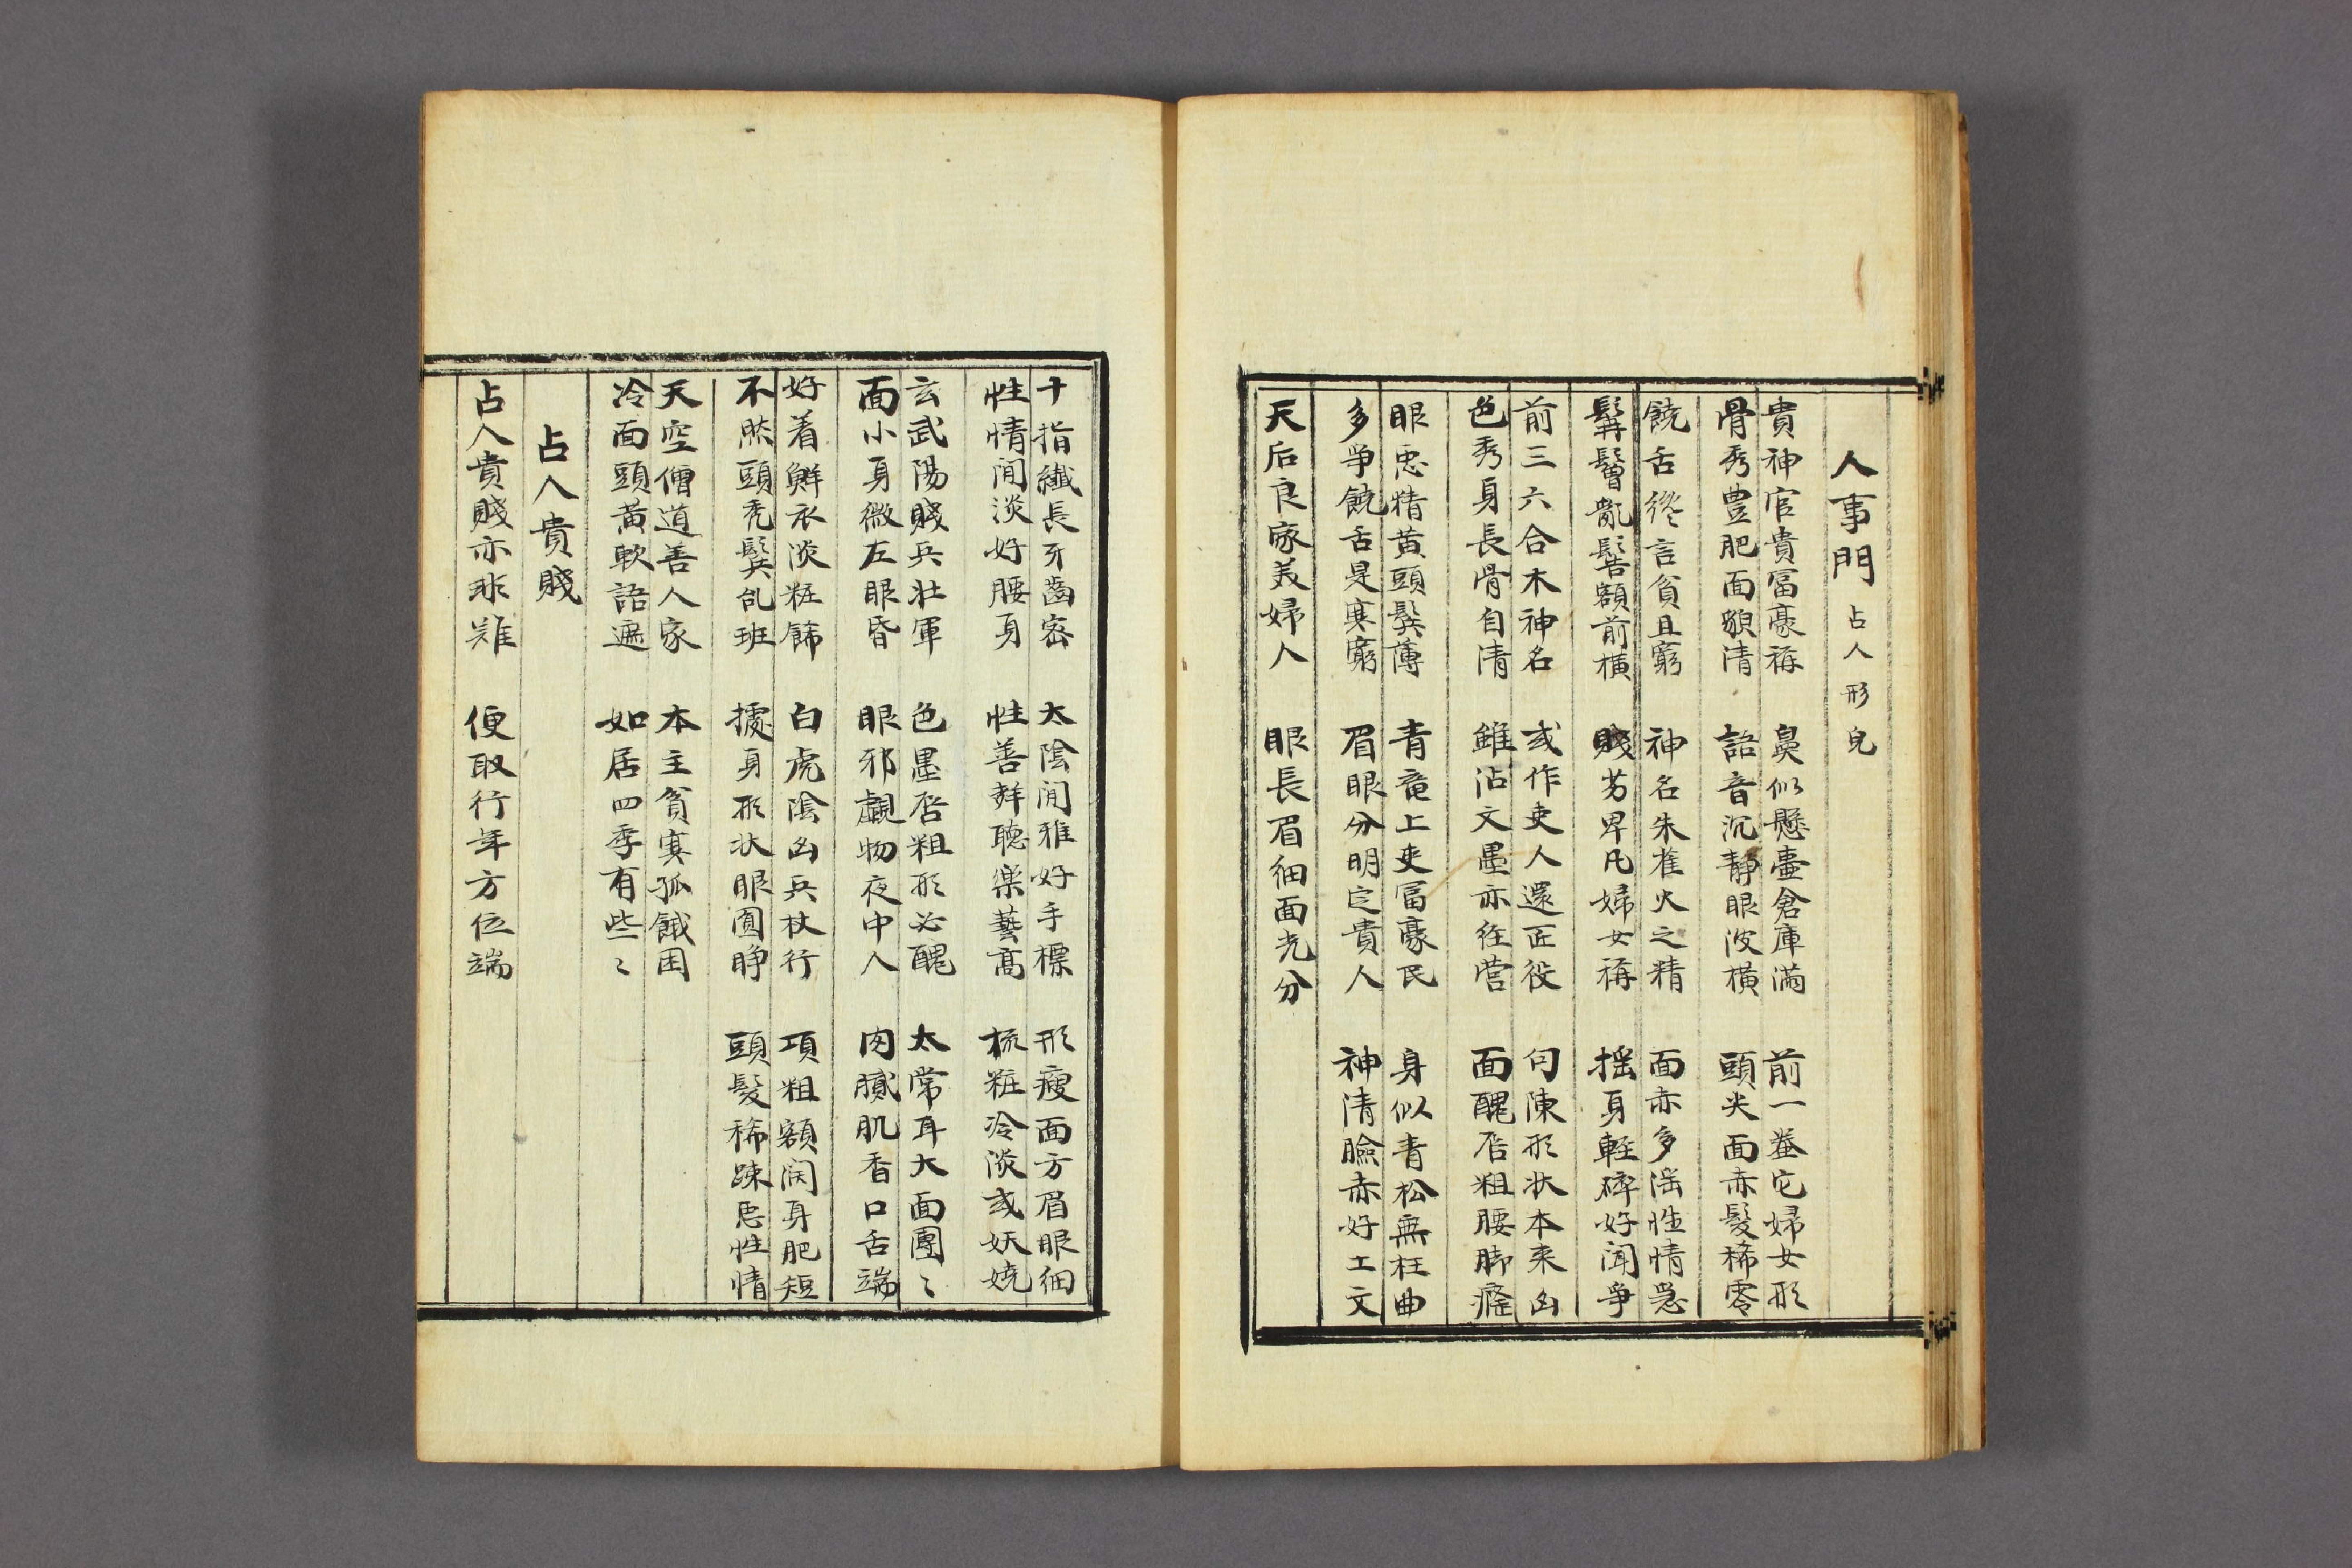 人事門 占人形皃
貴神官貴冨豪称 鼻似懸壷倉庫滿 前一螣它婦女形
骨秀豊肥面貌清 語音沉靜眼波橫 頭尖面赤髮稀零
饒舌終言貧且窮 神名朱隺火之精 面赤多滛性情急
髯鬢亂髻額前橫 賤劣卑凡婦女称 揺身輕碎好闻爭
前三六合木神名 或作吏人還匠役 勾陳形狀本来凶
色秀身長骨自清 雖沾文墨亦経营 面醜唇粗腰脚癃
眼悪精黄頭鬓薄 青竜上吏冨豪民 身似青松無枉曲
多爭饒舌是寒窮 眉眼分明㝎貴人 神清臉赤好工文
天后良家美婦人 眼長眉细面光分
十指纎長牙齒密 太陰闲雅好手標 形瘦面方眉眼细
性情闲淡好腰身 性善觧聴楽藝髙 梳粧冷淡或妖娆
玄武陽賤兵壮軍 色墨唇粗形必醜 太常耳大面團〻
面小身微左眼昏 眼邪覷物夜中人 肉膩肌香口舌端
好着鮮衣淡粧餙 白虎陰凶兵杖行 項粗額闊身肥短
不然頭秃鬓乱班 據身形状眼圓睁 頭髮稀踈惡性情
天空僧道善人家 本主貧寒孤餓困
冷面頭黄軟語遍 如居四季有些〻
占人貴賤
占人貴賤亦非难 便取行年方位端